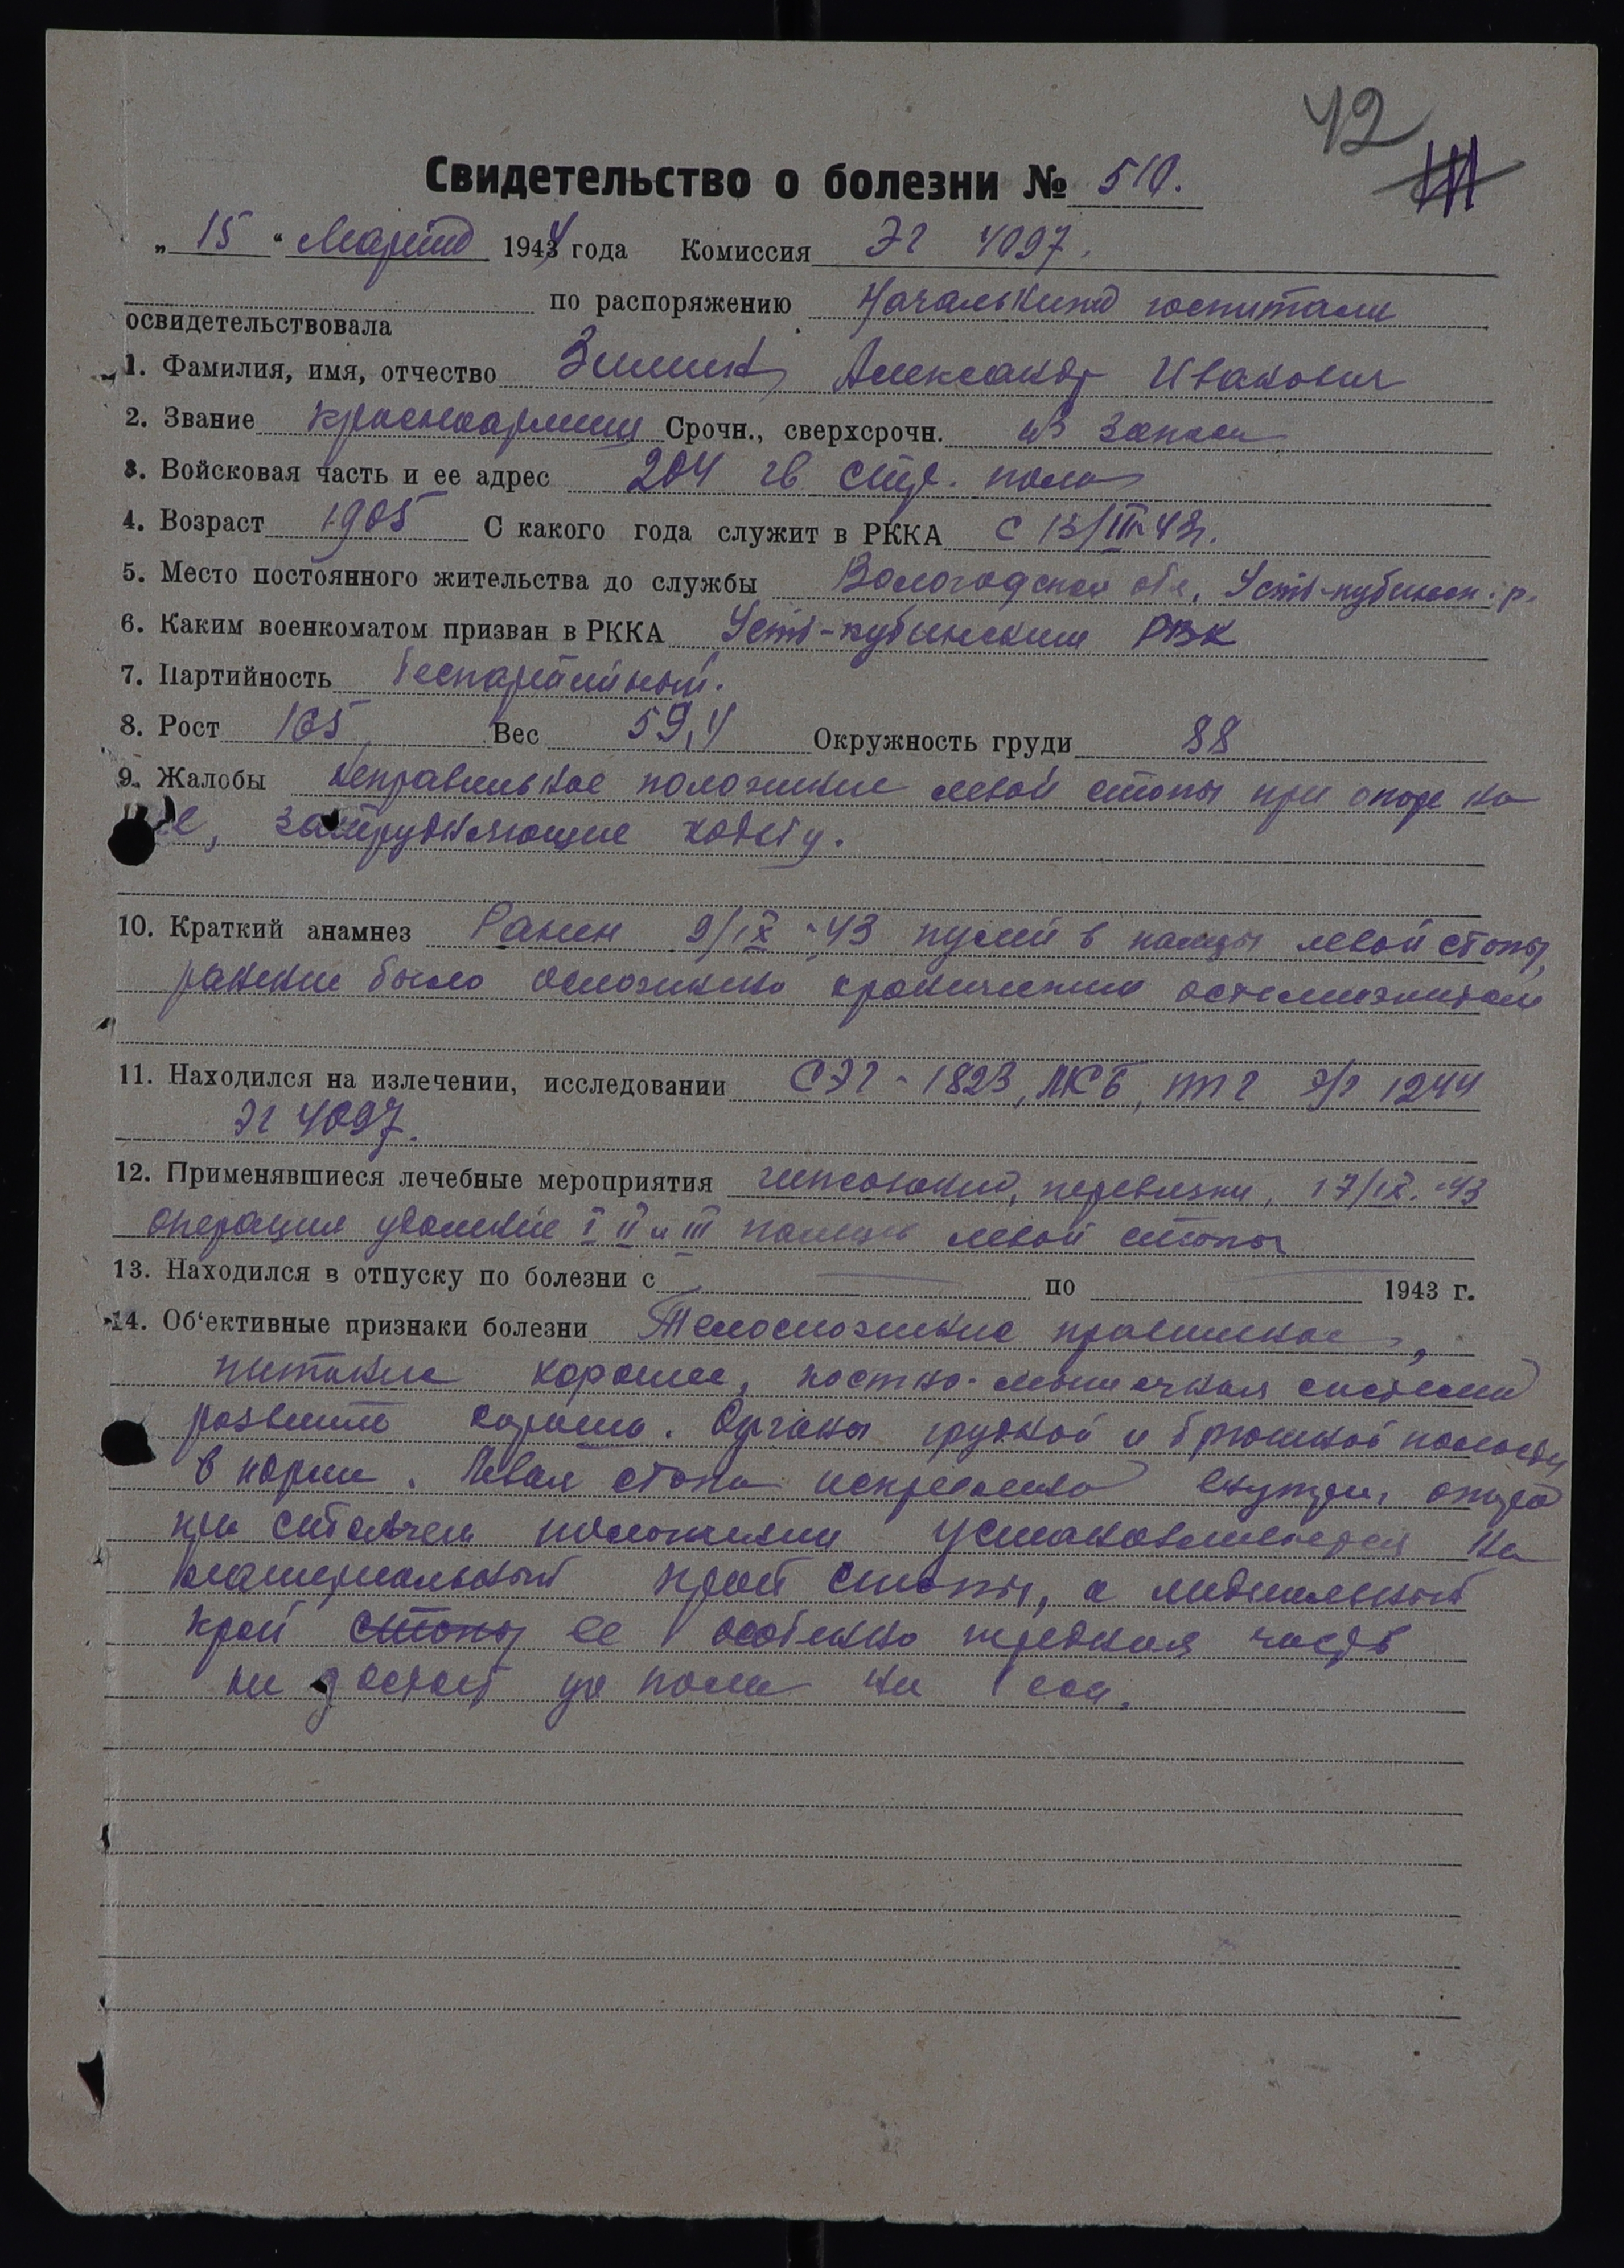 42
Свидетельство о болезни № 510.
„15“ Марта 1944 года Комиссия ЭГ 4097.
по распоряжению Начальника госпиталя
освидетельствовала
1. Фамилия, имя, отчество Зимин Александр Иванович
2. Звание красноармеец Срочн., сверхсрочн. из запаса
3. Войсковая часть и ее адрес 204 гв стр. полк
4. Возраст 1905 С какого года служит в РККА с 13/III-43г.
5. Место постоянного жительства до службы Вологодская обл, Усть-кубинск. р.
6. Каким военкоматом призван в РККА Усть-кубинским РВК
7. Партийность беспартийный.
8. Рост 165 Вес 59,4 Окружность груди 88
9. Жалобы неправильное положение левой стопы при опоре на
нее, затрудняющие ходьбу.
10. Краткий анамнез Ранен 9/IX-43 пулей в пальцы левой стопы,
ранение было осложнено хроническим остеомиэлитом
11. Находился на излечении, исследовании СЭГ-1823, МСБ, ППГ э/г 1244
ЭГ 4097.
12. Применявшиеся лечебные мероприятия перевязки, 17/IX-43
операция удаление I II и III пальцев левой стопы
13. Находился в отпуску по болезни с по 1943 г.
14. Об‘ективные признаки болезни Телосложение правильное,
питание хорошее, костно-мышечная система
развита хорошо. Органы грудной и брюшной полости
в норме. Левая стопа искривлена внутри, опора
при стоячем положении устанавливается на
латеральный край стопы, а медиальный
край стопы ее особенно передняя часть
не достает до пола на 1 см.